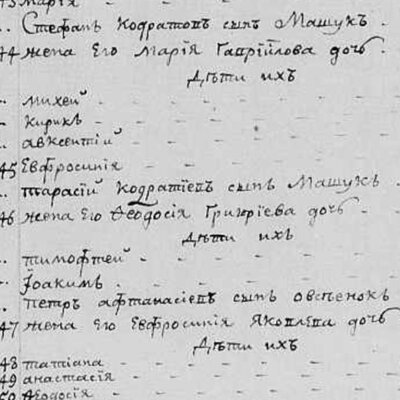 43 Мария
Стефанъ Кодратовъ сынъ Мащукъ
44 жена Его Марія Гавріилова дочь
Дѣти ихъ
михей
Кирикъ
авксентій
45 Евфросинія
тарасій Кодратіевъ сынъ Мащукъ
46 жена Его Ѳеодосія Григоріева дочь
Дѣти ихъ
тимофтей
Іоакимъ
петръ афтанасіевъ сынъ овсѣнокъ
47 жена Его Евфросинія Яковлева дочь
Дѣти ихъ
48 татіана
49 анастасія
50 Ѳеодосія